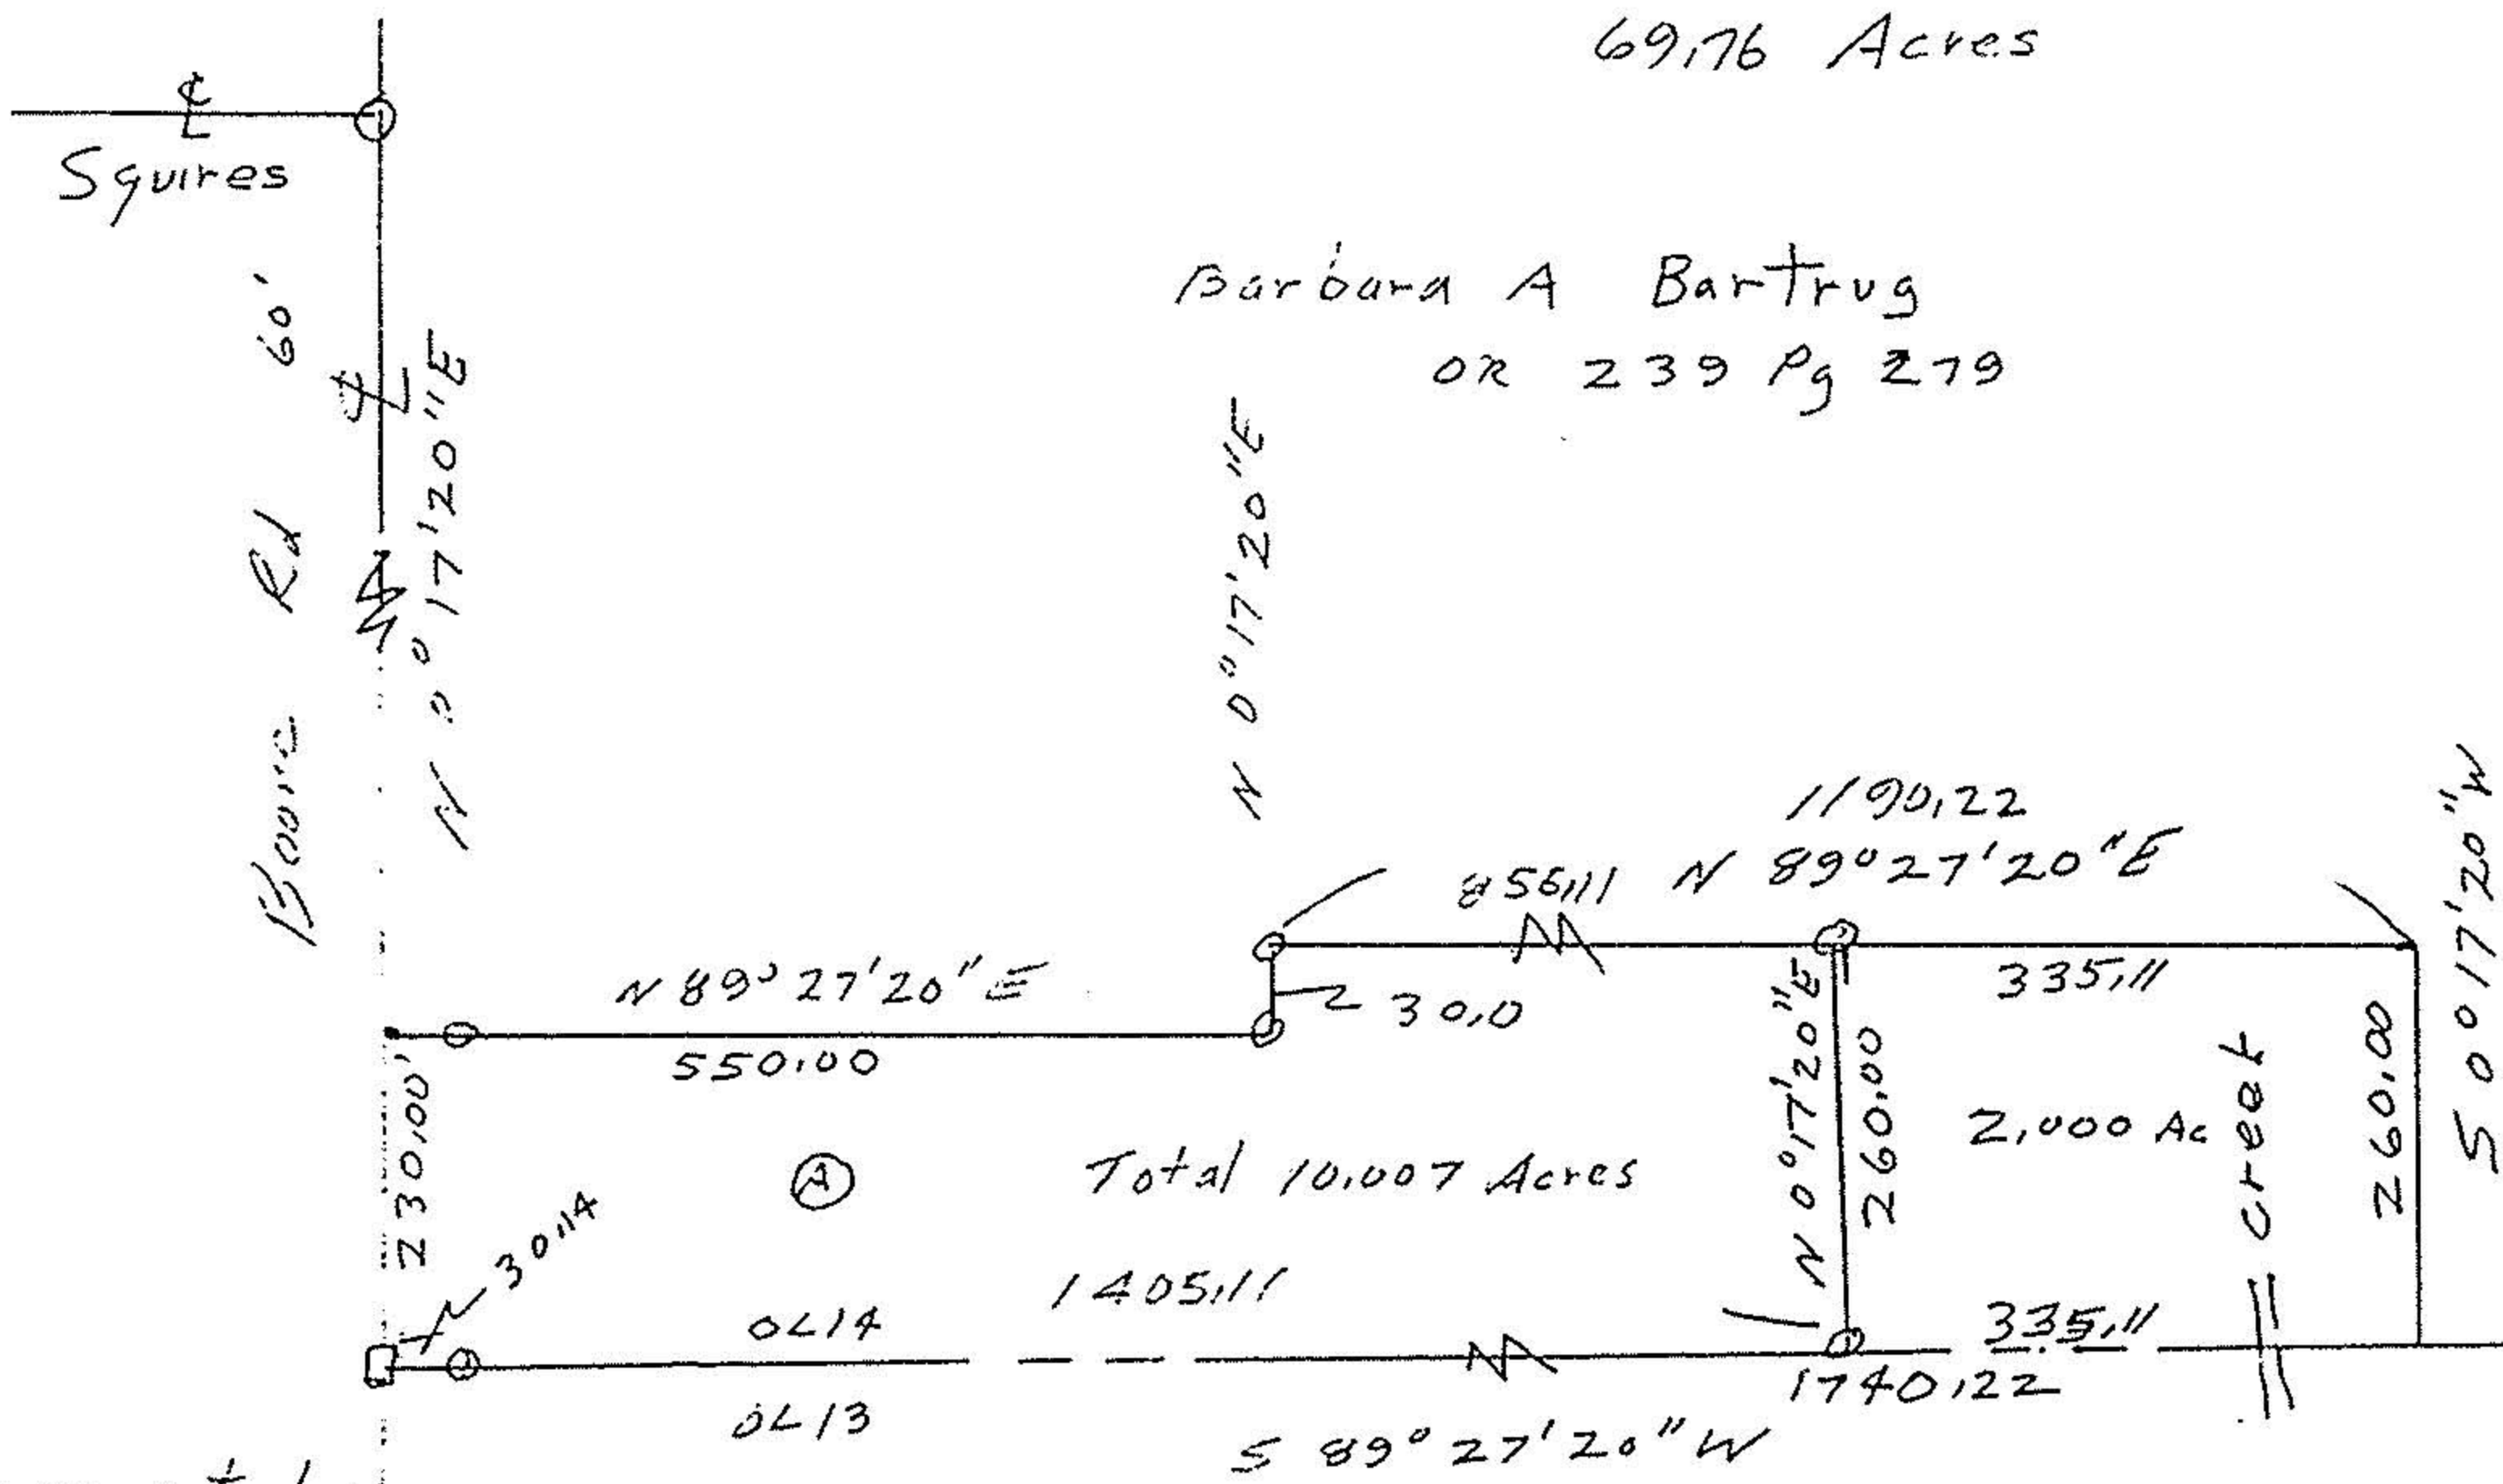 69.76 Acres
℄
Squires
60'
Barbara A Bartrug
OR 239 Pg 279
℄
N 0°17'20"E
N 0°17'20"E
Rd
1190.22
N 89°27'20"E
S 0°17'20"W
N 89°27'20"E
30.0
335.11
550.00
230.00'
N 0°17'20"E
260.00
2.000 Ac
Creek
260.00
A
Total 10.007 Acres
1405.11
OL14
335.11
1740.22
OL13
S 89°27'20"W